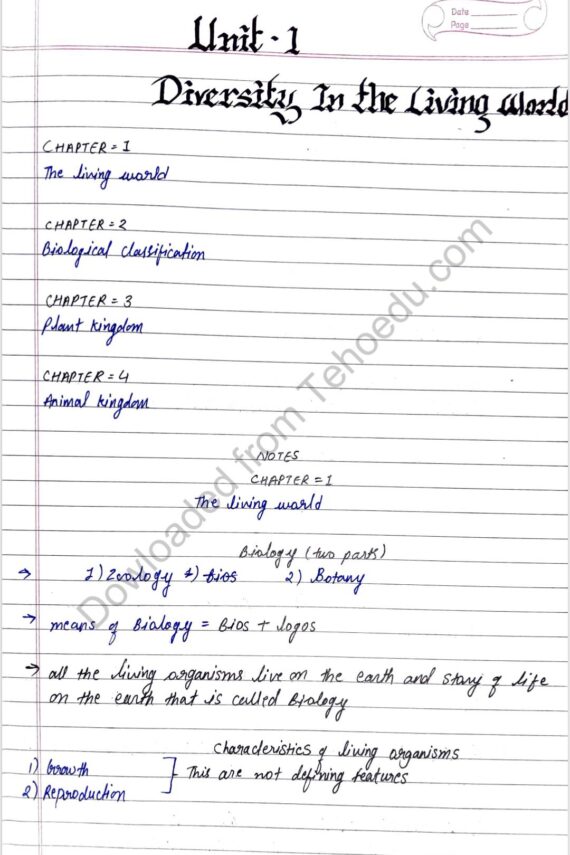 Date
Page
Unit - 1
Diversity In the Living World
CHAPTER = 1
The living world
CHAPTER = 2
Biological classification
CHAPTER = 3
Plant kingdom
CHAPTER = 4
Animal kingdom
NOTES
CHAPTER = 1
The living world
Biology (two parts)
→ 1) Zoology *) Bios 2) Botany
→ means of Biology = Bios + logos
→ all the living organisms live on the earth and story of life
on the earth that is called Biology
Characteristics of living organisms
1) Growth
2) Reproduction
This are not defining features
Dowloaded from Tehoedu.com